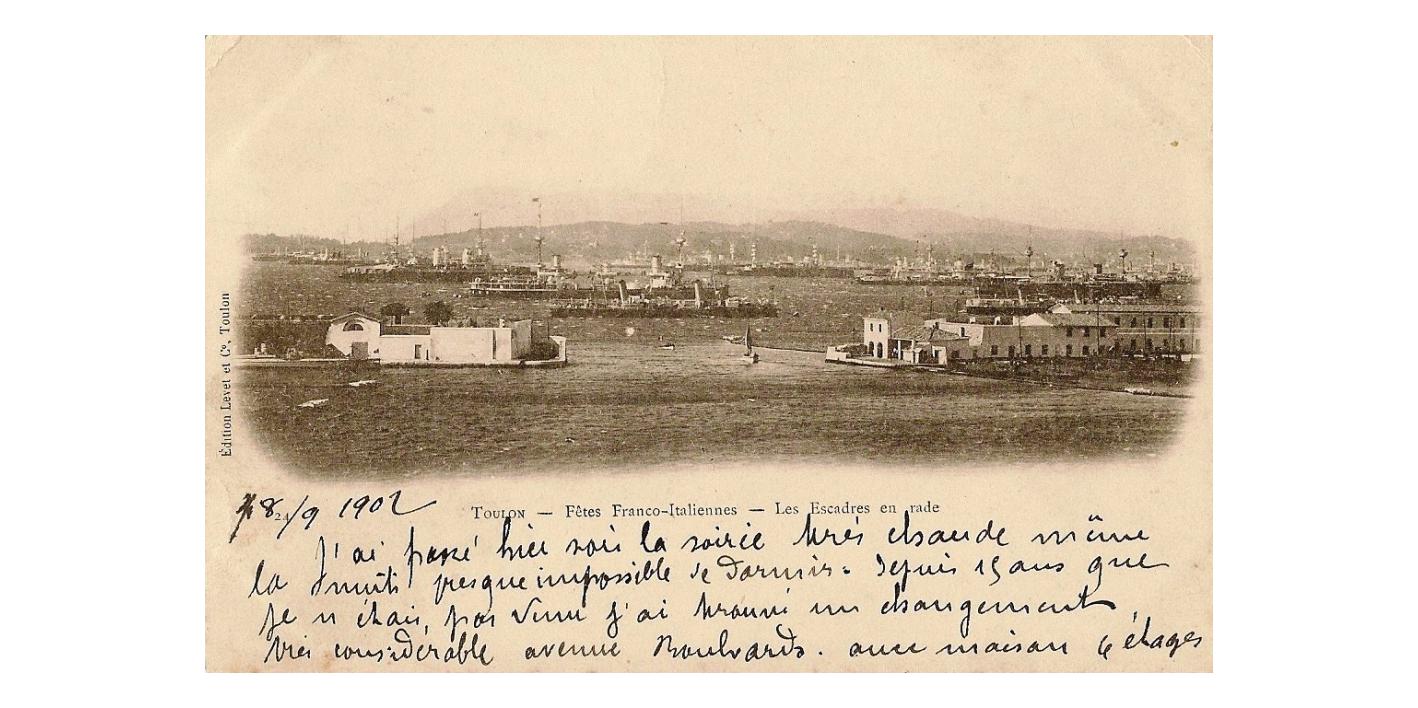 Édition Levet et Cie, Toulon
18/9 1902
24
TOULON — Fêtes Franco-Italiennes — Les Escadres en rade
J'ai passé hier soir la soirie très chaude même
la nuit presque impossible de Dormir. Depuis 15 ans que
je n étais, pas venu j'ai trouvé un changement
très considérable avenue Boulvards. avec maison 6 étages